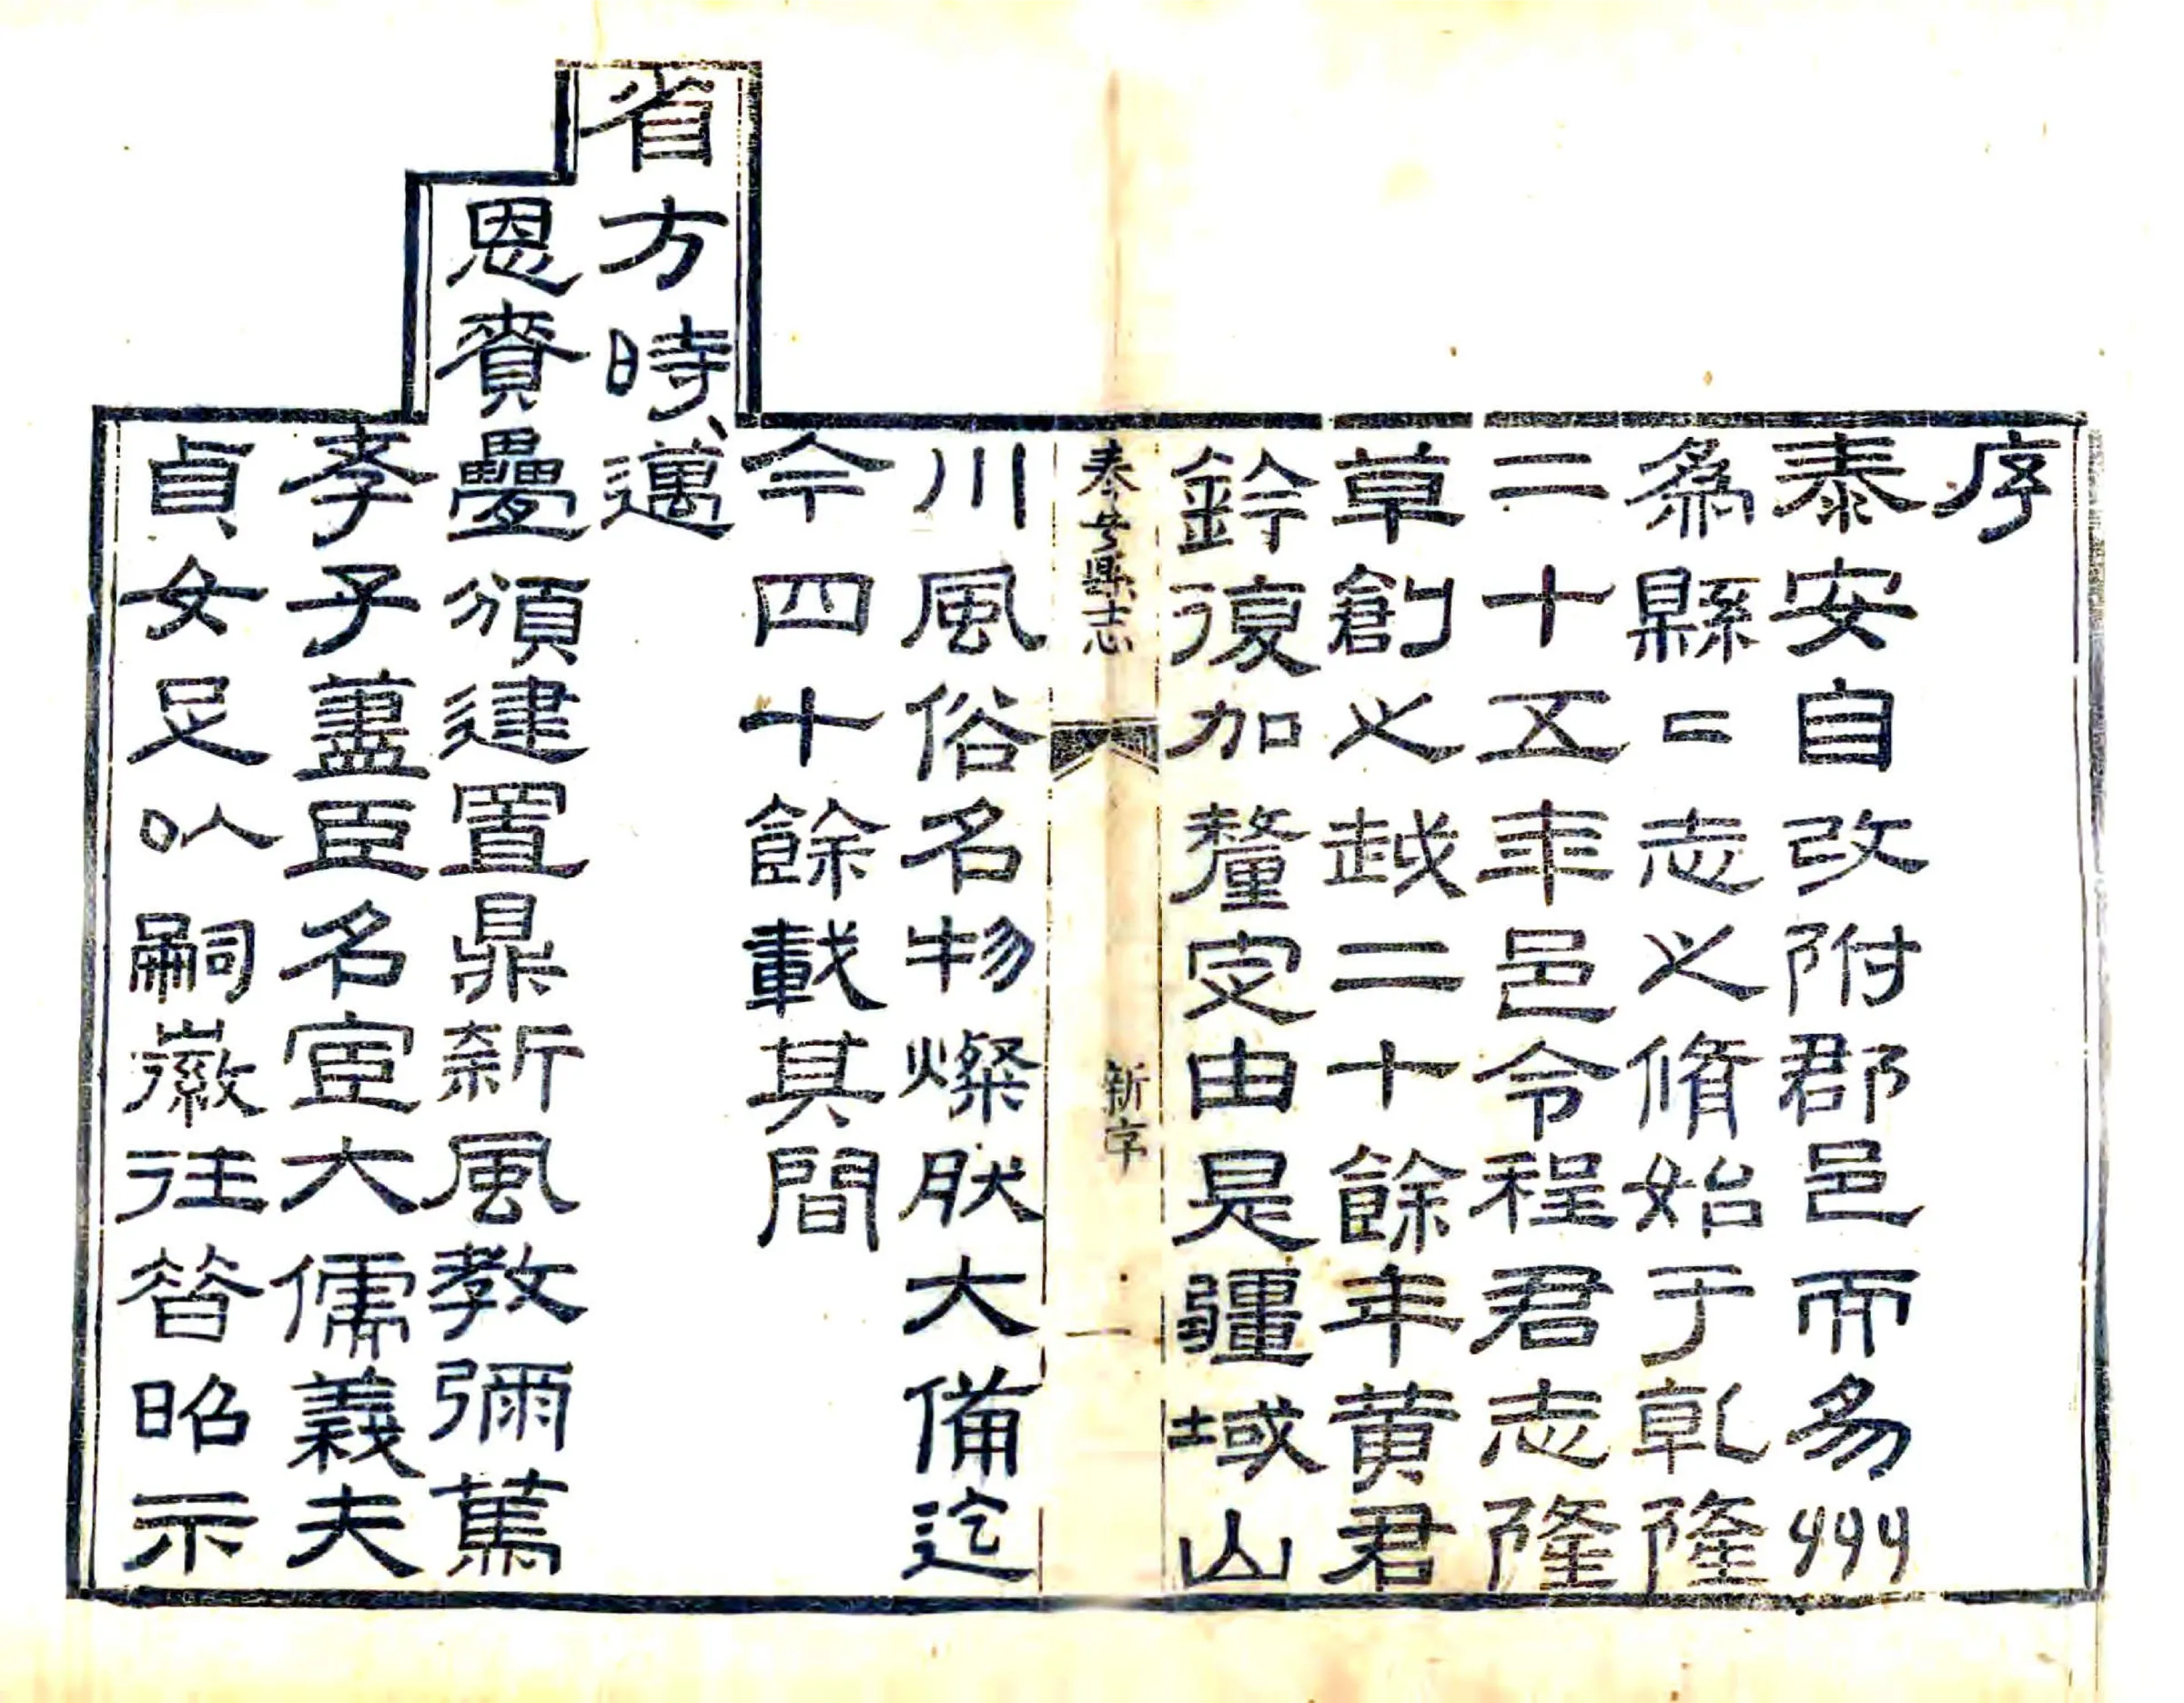 序
泰安自改附郡邑而易州
為縣二志之脩始于乾隆
二十五年邑令程君志隆
草創之越二十餘年黄君
鈐復加釐定由是疆域山
泰安縣志
新序
一
川風俗名物燦肰大備迄
今四十餘載其間
省方時邁
恩賚疊頒建置鼎新風教彌篤
孝子藎臣名宦大儒義夫
貞女足以嗣徽往昝昭示